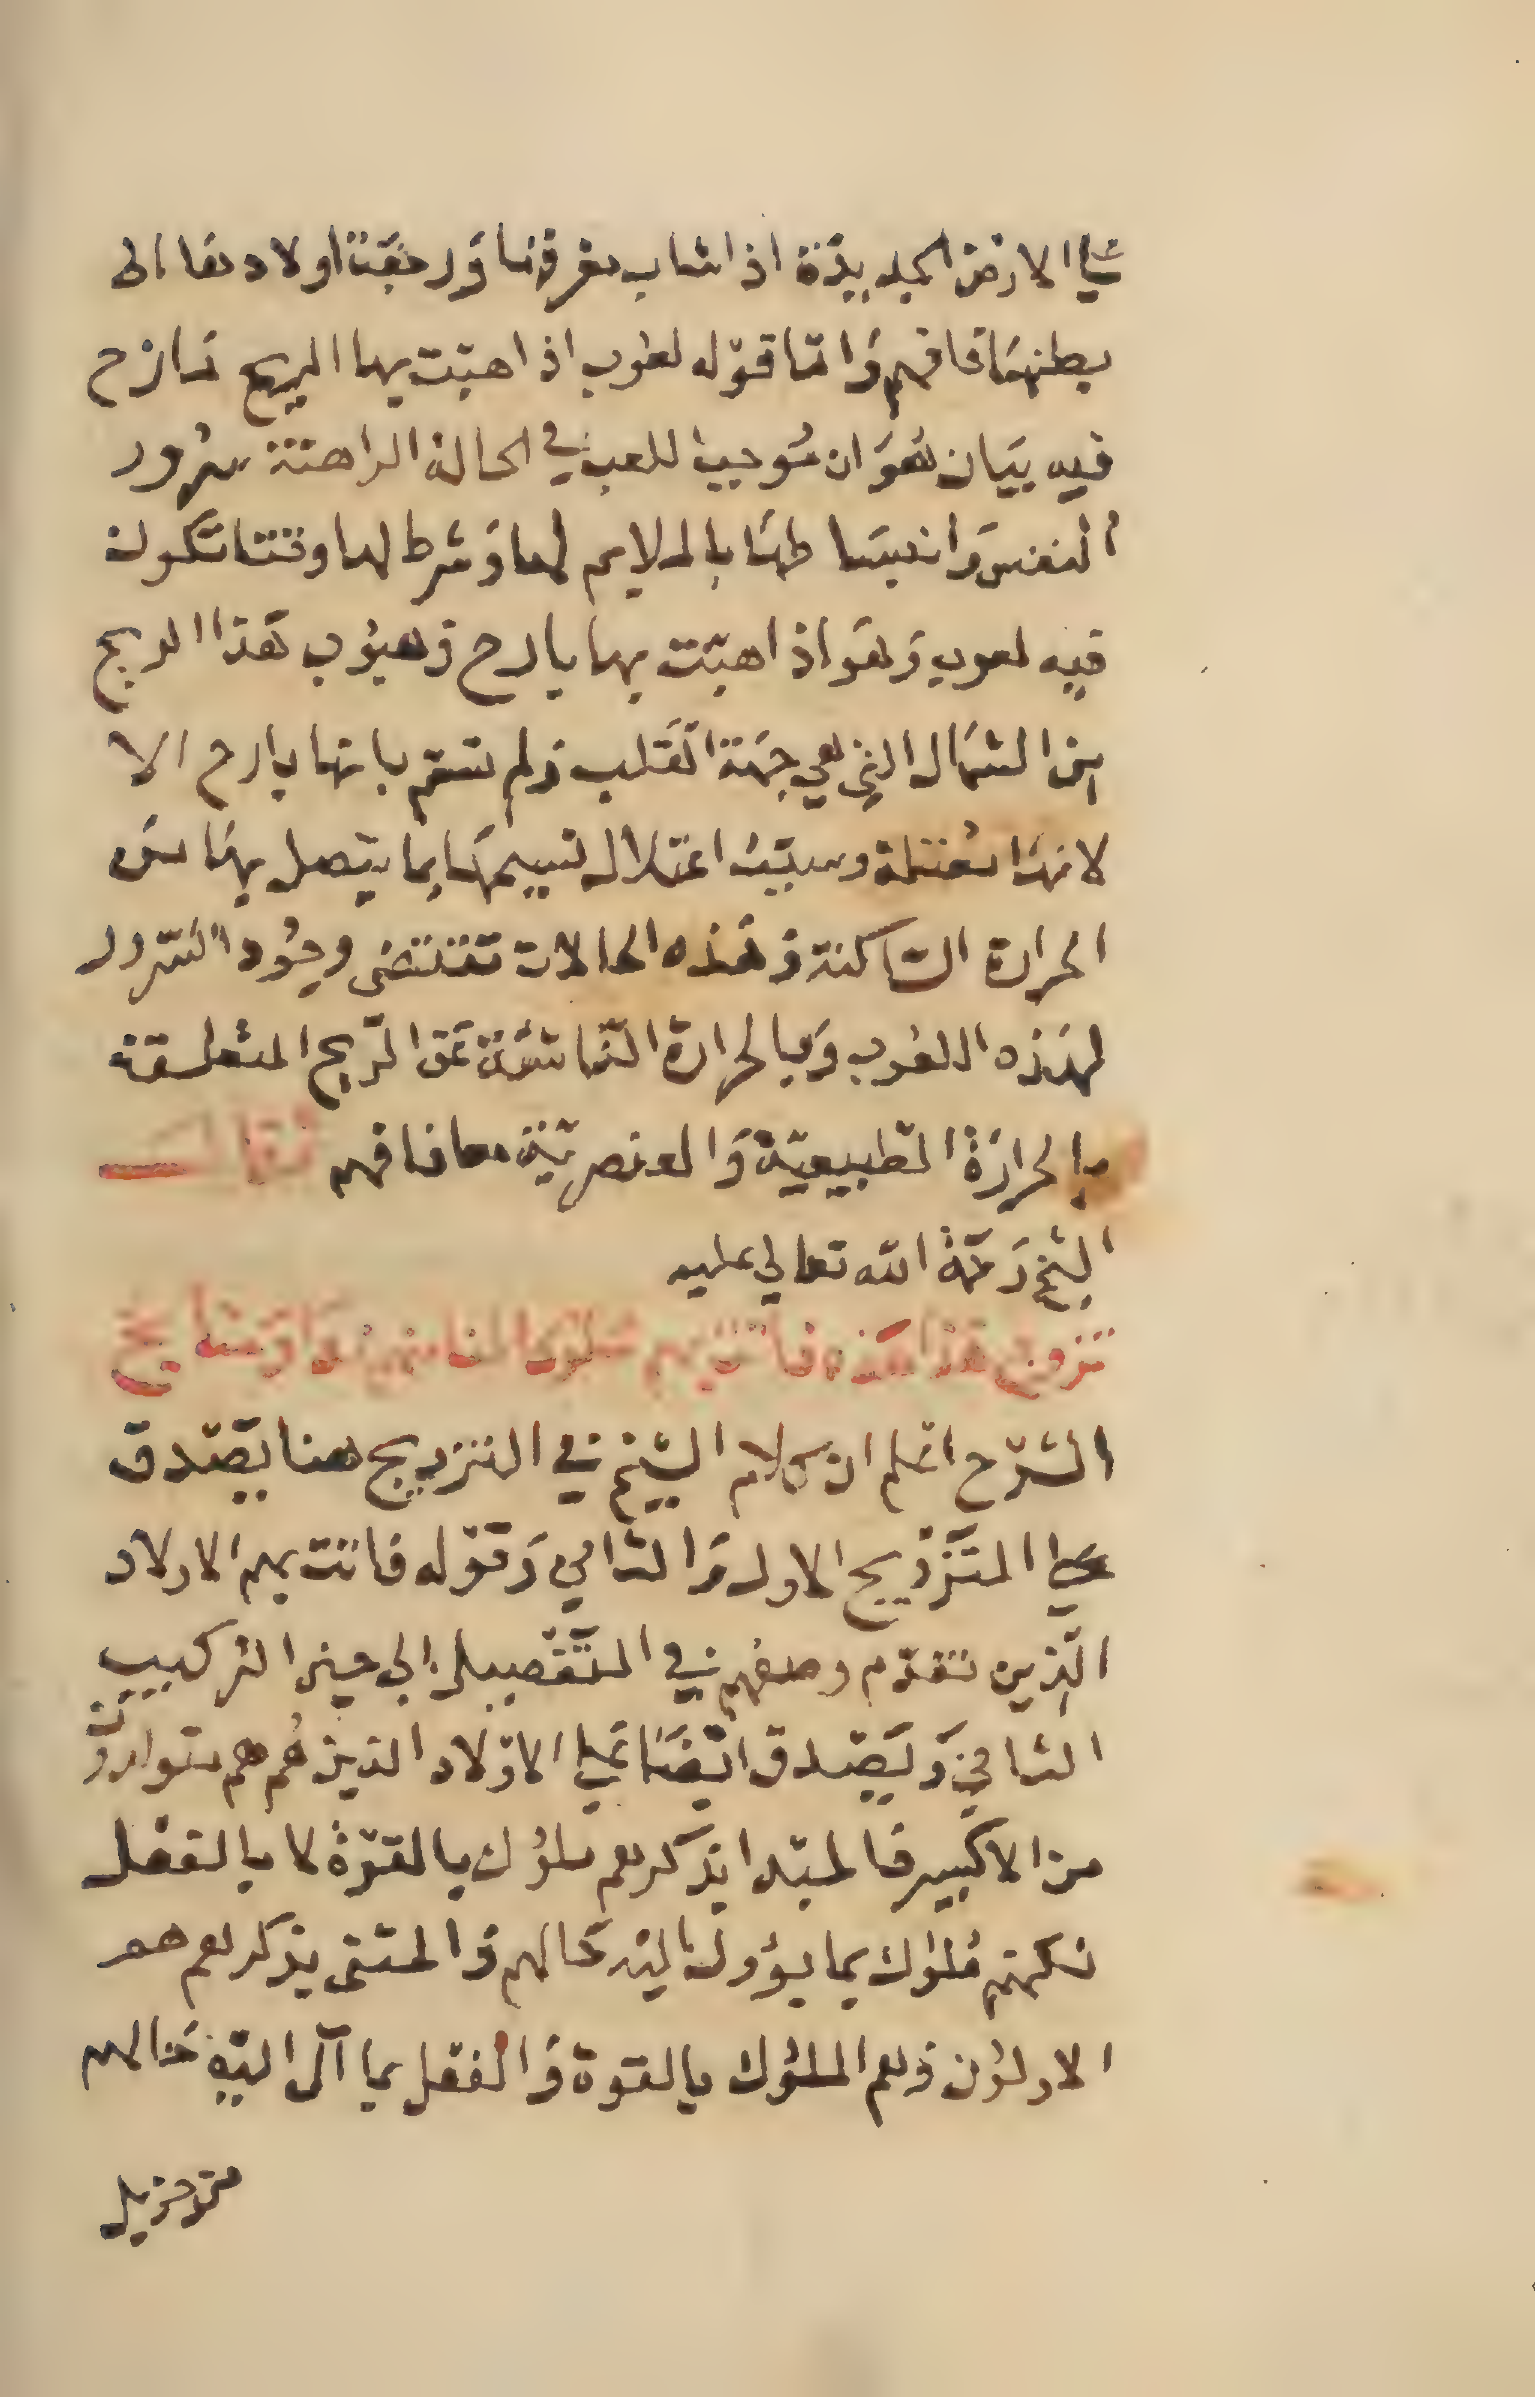 الارض الجديدة اذا شاب مفرقها ورجعت اولادها الى
بطنها فافهم واما قوله لعوب اذا هبت بها الريح نازح
فيه بيان هو ان موجب اللعب في الحالة الراهنة سرور
النفس وانبساطها بالملايم لها وشرط لها وقتا تكون
فيه لعوب وهو اذا هبت بها بارح وهبوب هذا الريح
من الشمال التي هي جهة القلب ولم تسم بانها بارح الا
لانها معتلة وسبب اعتلال نسيمها بما يتصل بها من
الحرارة الساكنة وهذه الحالات تقتضي وجود السرور
لهذه اللعوب وبالحرارة الناشئة عن الريح المتعلقة
بالحرارة الطبيعية والعنصرية معا فافهم قال
الشيخ رحمة الله تعالي عليه
تزوج هذا هذه فاتت بهم ملوك
الشرح اعلم ان كلام الشيخ في التزويج هنا يصدق
علي التزويج الاول والثاني وقوله فاتت بهم الاولاد
الذين تقدم وصفهم في التفصيل الى حين التركيب
الثاني ويصدق ايضا علي الاولاد الذين هم هم متوالدون
من الاكسير فالمبتدا بذكرهم ملوك بالقوة لا بالفعل
ملوك بما يؤول اليه حالهم والمثنى بذكرهم هم
الاولون وهم الملوك بالقوة والفعل بما آل اليه حالهم